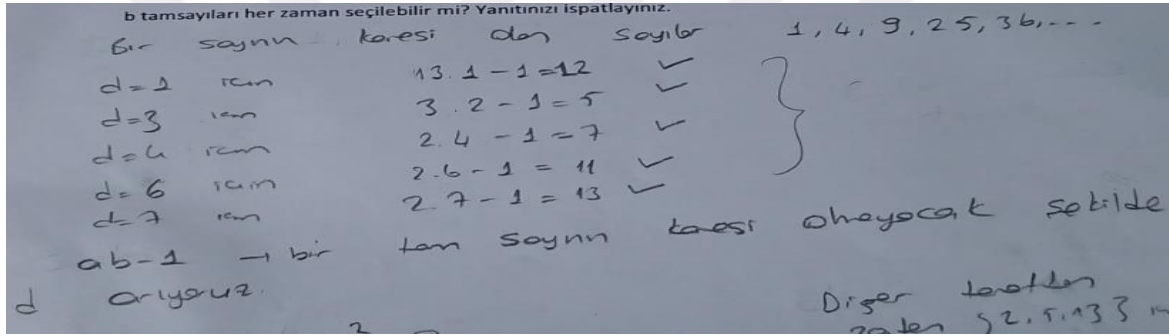 b tamsayıları her zaman seçilebilir mi? Yanıtınızı ispatlayınız.
Bir sayının karesi olan sayılar 1, 4, 9, 25, 36, ...
d=1 için 13.1-1=12 ✓
d=3 için 3.2-1=5 ✓
d=4 için 2.4-1=7 ✓
d=6 için 2.6-1=11 ✓
d=7 için 2.7-1=13 ✓
ab-1 → bir tam sayının karesi olmayacak şekilde
d arıyoruz.
Diğer taraftan
2 zaten {2,5,13}